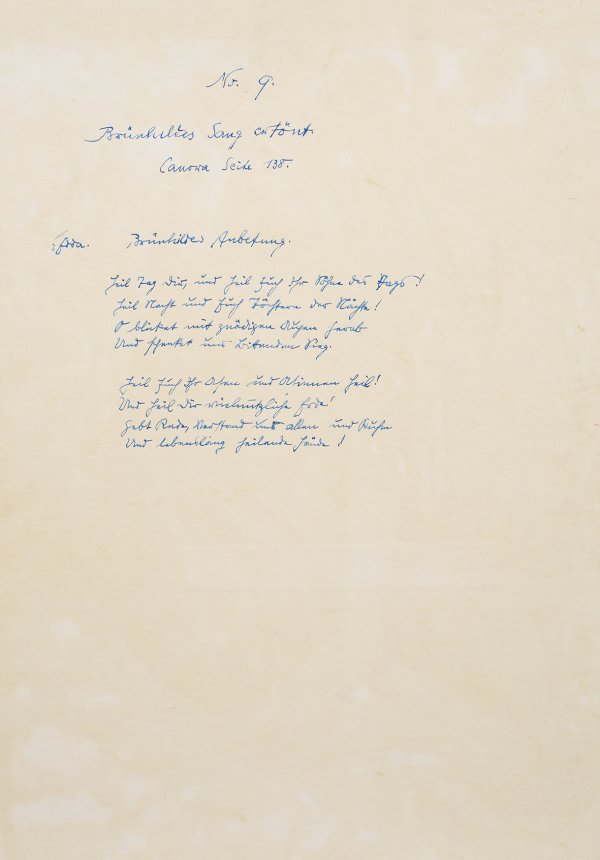 No. 9.
Brünhildes Sang ertönt.
Canova Seite 138.
Edda. Brünhildes Anbetung.
Heil Tag Dir, und Heil Euch Ihr Söhne des Tags!
Heil Nacht und Euch Töchtern der Nächte!
O blicket mit gnädigen Augen herab
Und schenket uns Bittenden Sieg.
Heil Euch Ihr Asen und Asinnen Heil!
Und Heil Dir vielnützliche Erde!
Gebt Rede, Verstand uns allen und Ruhe
Und lebenslang heilende Hände!